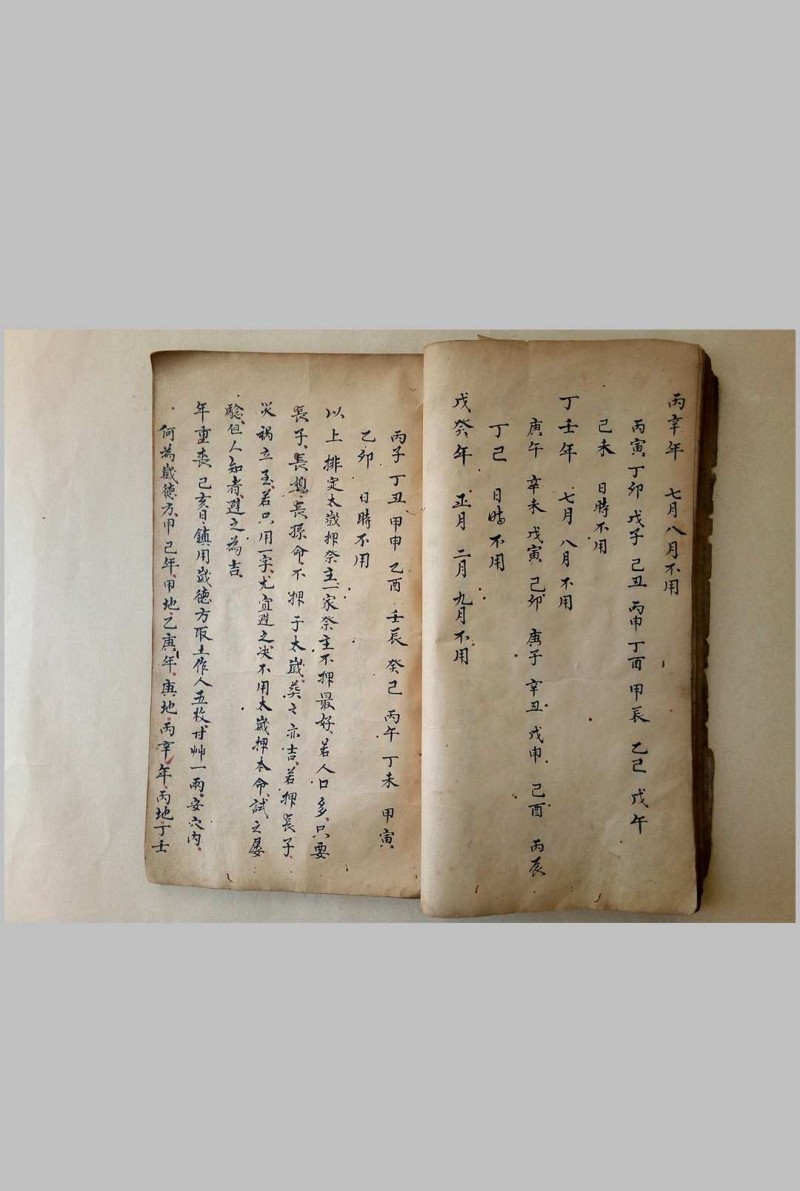 丙辛年 七月八月不用
丙寅 丁卯 戊子 己丑 丙申 丁酉 甲辰 乙己 戊午
己未 日時不用
丁壬年 七月 八月 不用
庚午 辛未 戊寅 己卯 庚子 辛丑 戊申 己酉 丙辰
丁己 日時不用
戊癸年 正月 二月 九月不用
丙子 丁丑 甲申 乙酉 壬辰 癸己 丙午 丁未 甲寅
乙卯 日時不用
以上排定太歲押祭主一家祭主不押最好若人口多只要
長子長媳長孫命不押于太歲葬之亦吉若押長子
災禍立至若只用一字尤宜避之决不用太歲押本命試之屡
驗但人知者避之為吉
年重喪己亥日鎮用歲德方取土作人五枚甘艸一兩安穴内
何為歲德方甲己年甲地乙庚年庚地丙辛年丙地丁壬